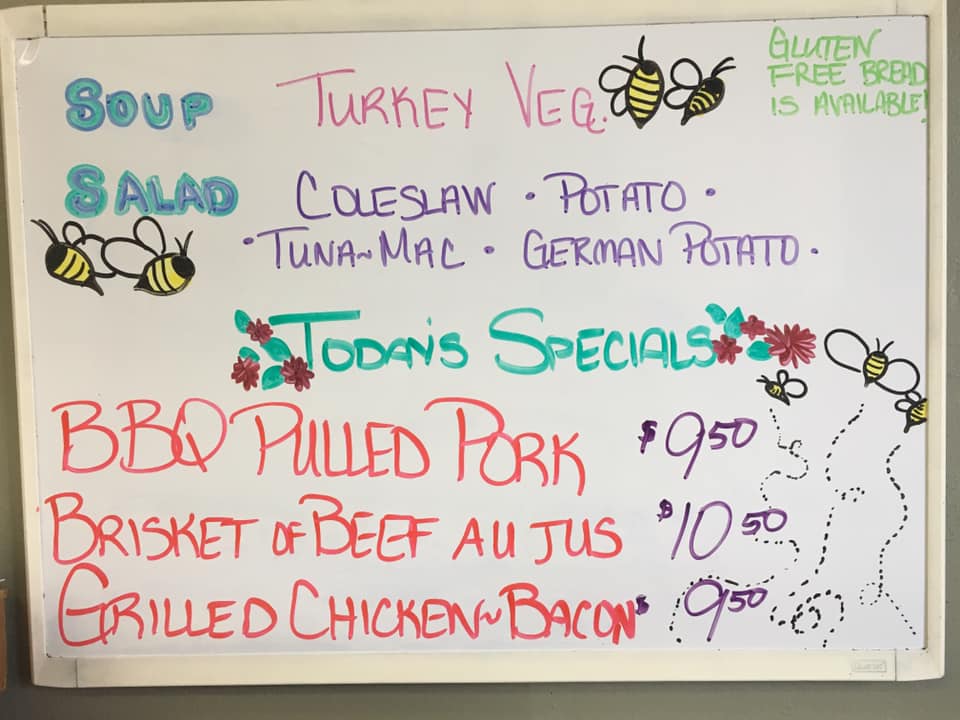 SOUP TURKEY VEG.
GLUTEN
FREE BREAD
IS AVAILABLE!
SALAD COLESLAW • POTATO •
• TUNA~MAC • GERMAN POTATO •
TODAY'S SPECIALS
BBQ PULLED PORK $9.50
BRISKET OF BEEF AU JUS $10.50
GRILLED CHICKEN~BACON $9.50